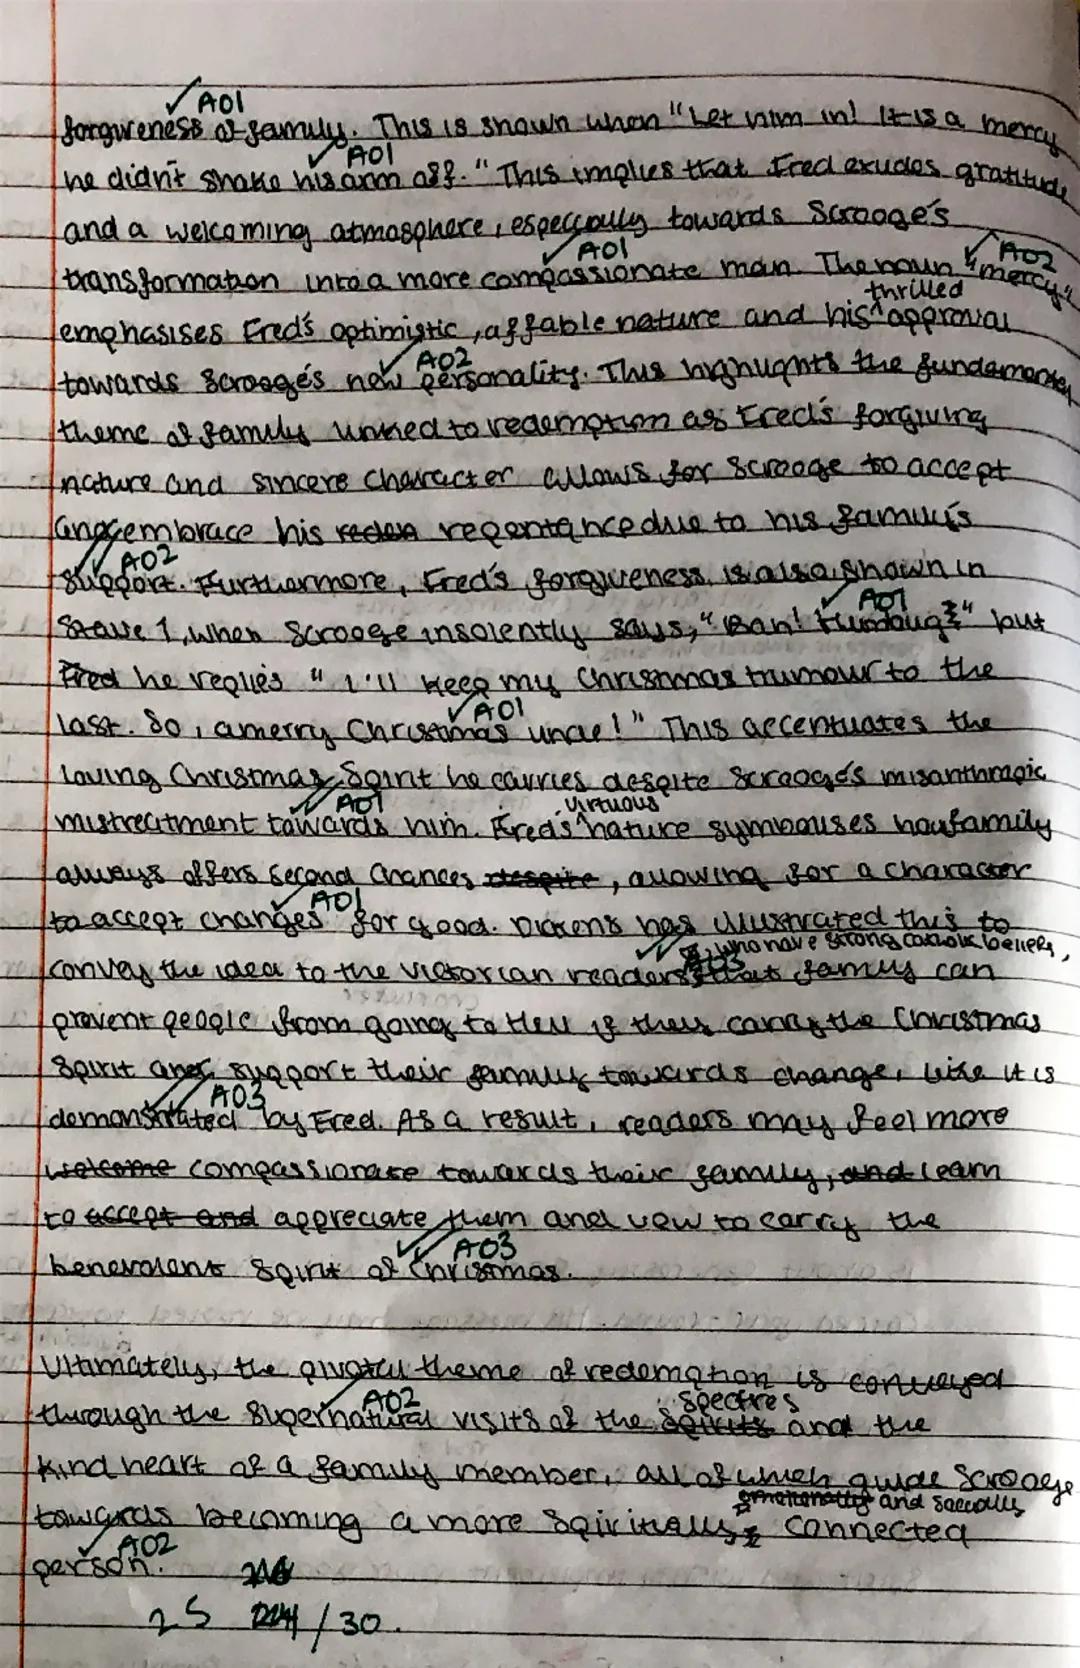 ✓ AO1
forgiveness of family. This is shown when "Let him in! It is a mercy
✓ AO1
he didn't shake his arm off." This implies that Fred exudes gratitude
and a welcoming atmosphere, especially towards Scrooge's
✓ AO1 AO2
transformation into a more compassionate man. The noun "mercy"
thrilled
emphasises Fred's optimistic, affable nature and his ^ approval
✓ AO2
towards Scrooge's new personality. This highlights the fundamental
theme of family linked to redemption as Fred's forgiving
nature and sincere character allows for Scrooge to accept
and embrace his repentance due to his family's
✓✓ AO2
support. Furthermore, Fred's forgiveness is also shown in
✓ AO1
Stave 1, when Scrooge insolently says, "Bah! Humbug!" but
Fred he replies "I'll keep my Christmas humour to the
✓ AO1
last. So, a merry Christmas uncle!" This accentuates the
loving Christmas Spirit he carries despite Scrooge's misanthropic
✓✓ AO1 virtuous
mistreatment towards him. Fred's ^ nature symbolises how family
always offers second chances despite, allowing for a character
✓ AO1
to accept changes for good. Dickens has illustrated this to
✓✓ AO3 , who have strong catholic beliefs,
convey the idea to the Victorian readers that family can
prevent people from going to Hell if they carry the Christmas
Spirit and support their family towards change, like it is
✓✓ AO3
demonstrated by Fred. As a result, readers may feel more
welcome compassionate towards their family, and learn
to accept and appreciate them and vow to carry the
✓✓ AO3
benevolent spirit of Christmas.
Ultimately, the pivotal theme of redemption is conveyed
✓ AO2 spectres
through the supernatural visits of the spirits and the
kind heart of a family member, all of which guide Scrooge
emotionally and socially
towards becoming a more spiritually connected
✓ AO2
person.
25 /30.